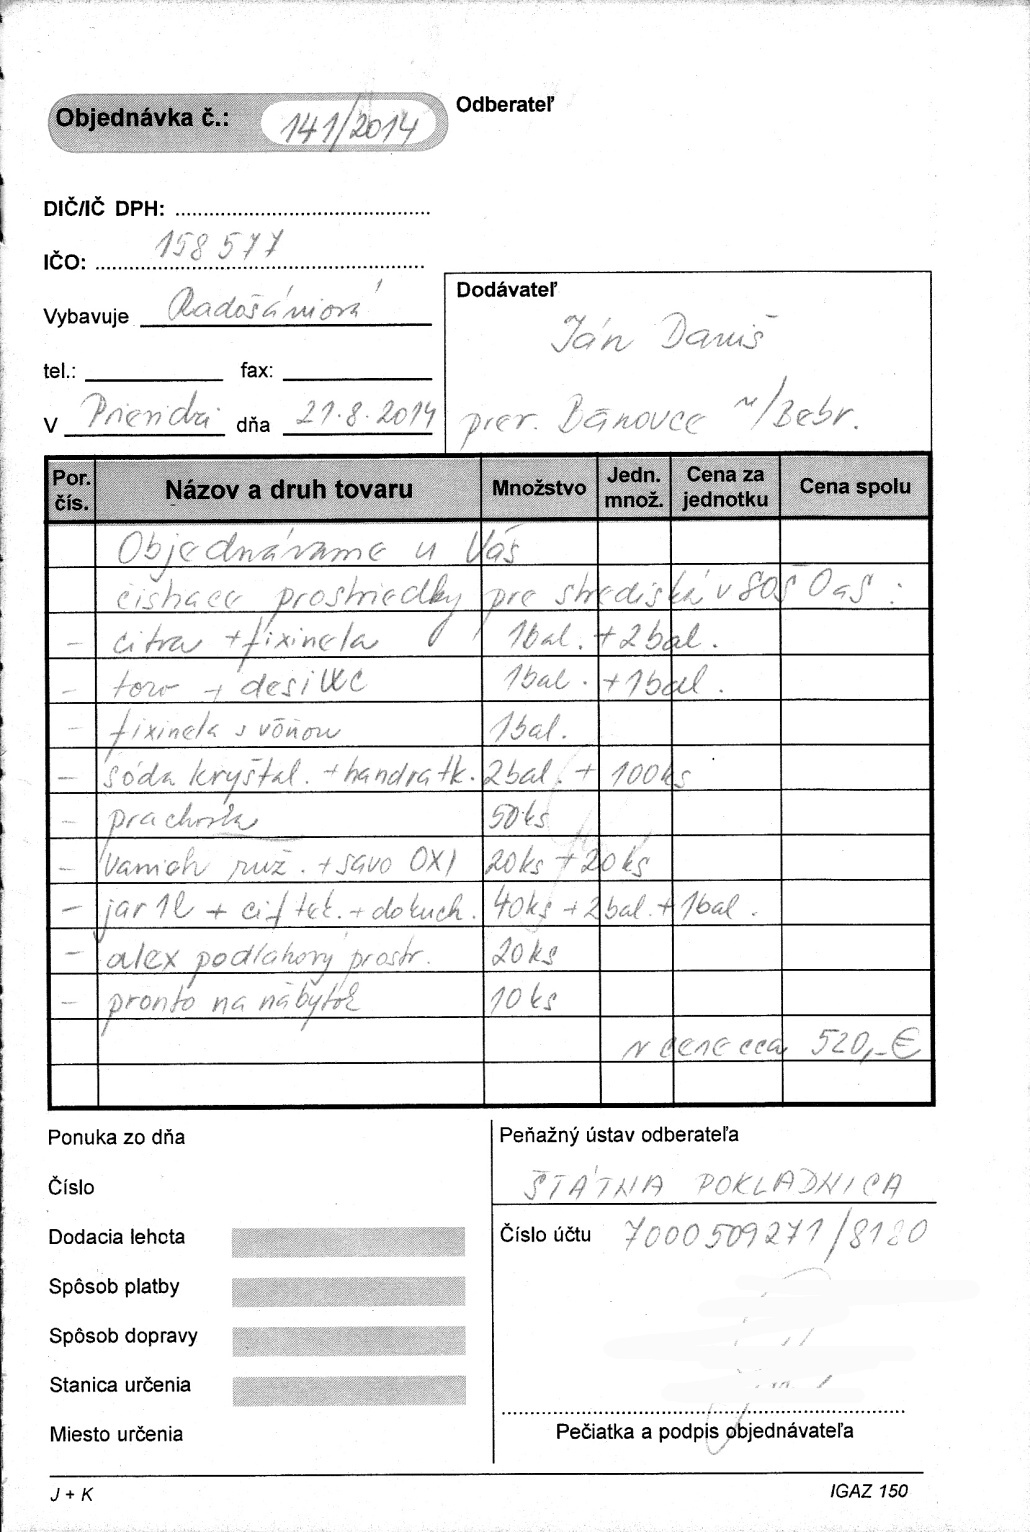 Objednávka č.: 141/2014
Odberateľ
DIČ/IČ DPH:
IČO: 158 577
Vybavuje Radošániová
tel.: fax:
V Prievidzi dňa 21.8.2014
Dodávateľ
Ján Daniš
prev. Bánovce n/Bebr.
Por. čís. Názov a druh tovaru Množstvo Jedn. množ. Cena za jednotku Cena spolu
Objednávame u Vás
čistiace prostriedky pre strediská v SOŠ OaS :
– citra + fixinela 1bal. + 2bal.
– toro + desi WC 1bal. + 1bal.
– fixinela s vôňou 1bal.
– sóda kryštal. + handra tk. 2bal. + 100ks
– prachovka 50ks
– vanish ruž. + savo OXI 20ks + 20ks
– jar 1l + cif tek. + dokuch. 40ks + 2bal. + 1bal.
– alex podlahový prostr. 20ks
– pronto na nábytok 10ks
v cene cca 520,-€
Ponuka zo dňa
Číslo
Dodacia lehota
Spôsob platby
Spôsob dopravy
Stanica určenia
Miesto určenia
Peňažný ústav odberateľa
ŠTÁTNA POKLADNICA
Číslo účtu 7000509271/8180
Pečiatka a podpis objednávateľa
J + K
IGAZ 150